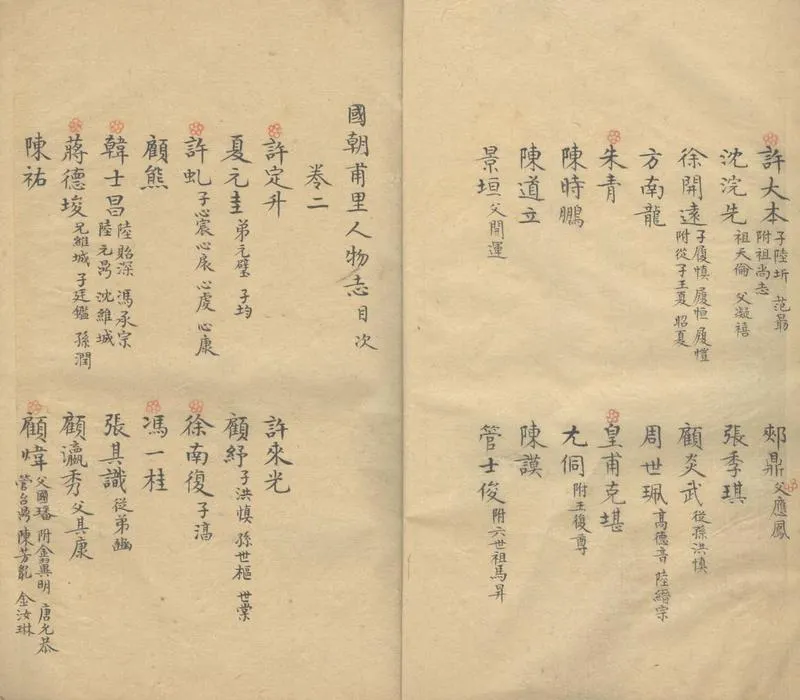 許大本 子陸圻 范最 附祖尚志
郟鼎 父應鳳
沈浣先 祖天倫 父凝禧
張季琪
徐開遠 子履慎 履恒 履愷 附從子王夏 昭夏
顧炎武 從孫洪慎
方南龍
周世珮 高德音 陸縉宗
朱青
皇甫克堪
陳時鵬
尤侗 附王復尊
陳道立
陳謨
景垣 父開運
管士俊 附六世祖馬昇
國朝甫里人物志目次
卷二
許定升
許來光
夏元圭 弟元璧 子均
顧紓 子洪慎 孫世樞 世棠
許虬 子心宸 心扆 心虔 心康
徐南復 子滈
顧熊
馮一桂
韓士昌 陸貽深 馮承宗 陸元禼 沈維城
張其識 從弟豳
蔣德埈 兄維城 子廷鑑 孫潤
顧瀛秀 父其康
陳祐
顧煒 父國璠 附翕異明 唐允恭 管台禼 陳芳胤 金汝琳